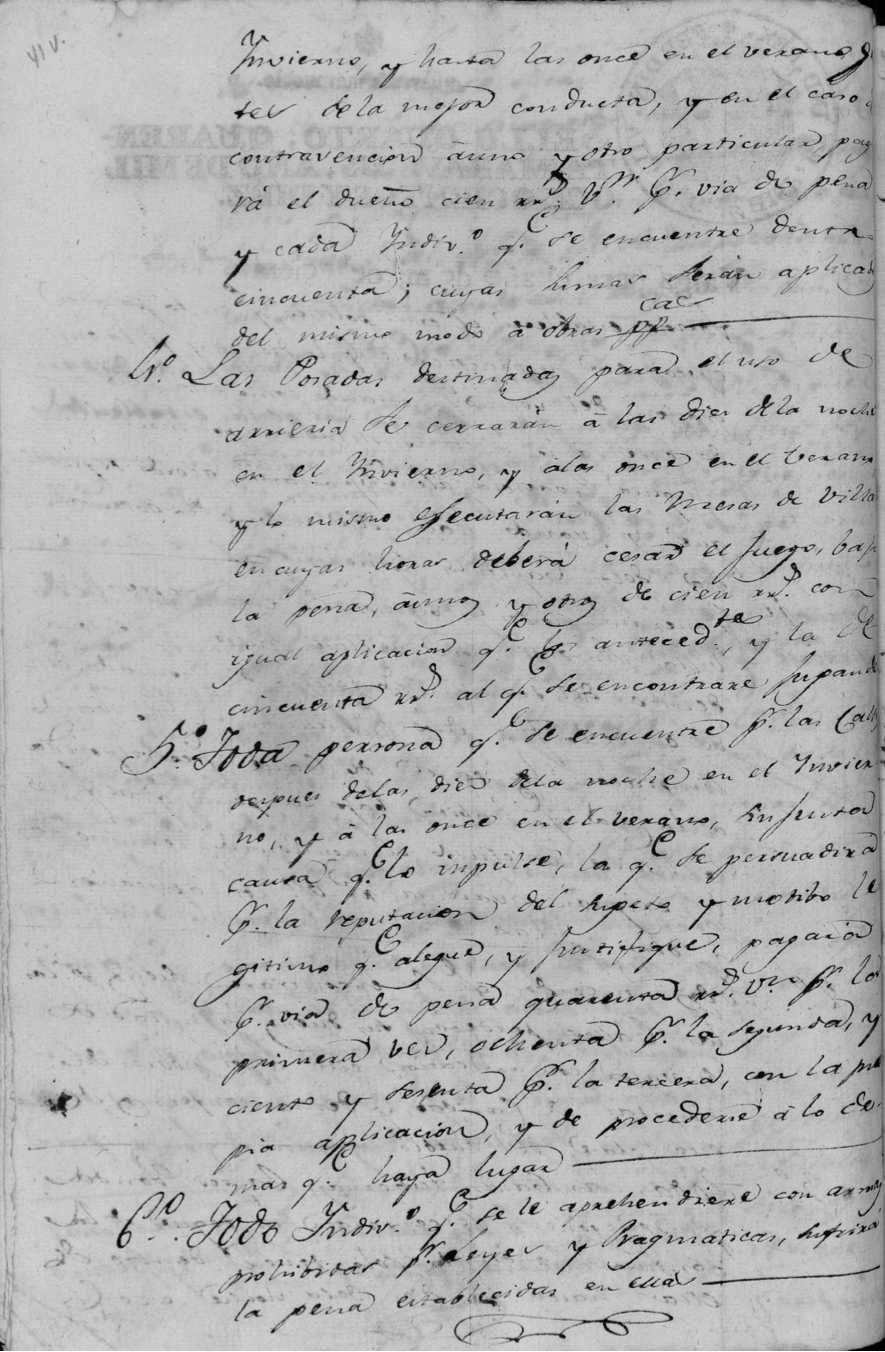 Invierno, y hasta las once en el verano,
tes de la mejor conducta, y en el caso
contravencion à uno y otro particular, pag
rà el dueño cien rr.^s V.^n p.^r via de pena
y cada Indiv.^o q.^e se encuentre dentro
cincuenta; cuyas sumas serán aplicad
del mismo modo à obras pp.^cas
4.^o Las Posadas destinadas para el uso de
arrieria se cerrarán à las diez de la noche
en el Invierno, y a las once en el Verano,
y lo mismo ejecutarán las Mesas de Villa
en cuyas horas deberá cesar el juego, bajo
la pena, à unos y otros de cien rr.^s con
igual aplicacion q.^e los anteced.^tes, y la de
cincuenta rr.^s al q.^e se encontrare jugando
5.^o Toda persona q.^e se encuentre p.^r las Calles
despues de las diez de la noche en el Invier
no, y à las once en el verano, sin justa
causa q.^e lo impulse, la q.^e se persuadirá
p.^r la reputacion del sugeto y motibo le
gitimo q.^e alegue, y justifique, pagará
p.^r via de pena quarenta rr.^s v.^n p.^r la
primera vez, ochenta p.^r la segunda, y
ciento y sesenta p.^r la tercera, con la pro
pia aplicacion, y de procederse à lo de
mas q.^e haya lugar
6.^o Todo Indiv.^o q.^e se le aprehendiere con armas
prohibidas p.^r Leyes y Pragmaticas, sufrirá
la pena establecidas en ellas